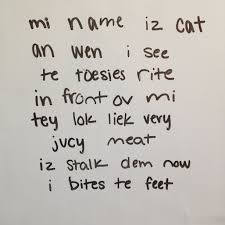 mi name iz cat
an wen i see
te toesies rite
in front ov mi
tey lok liek very
jucy meat
iz stalk dem now
i bites te feet